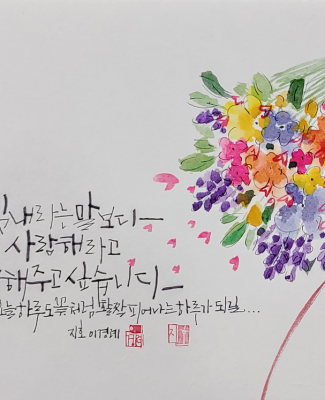 힘내라는 말보다
사랑해라고
해주고 싶습니다
오늘 하루도 꽃처럼 활짝 피어나는 하루가 되길...
지호 이경예